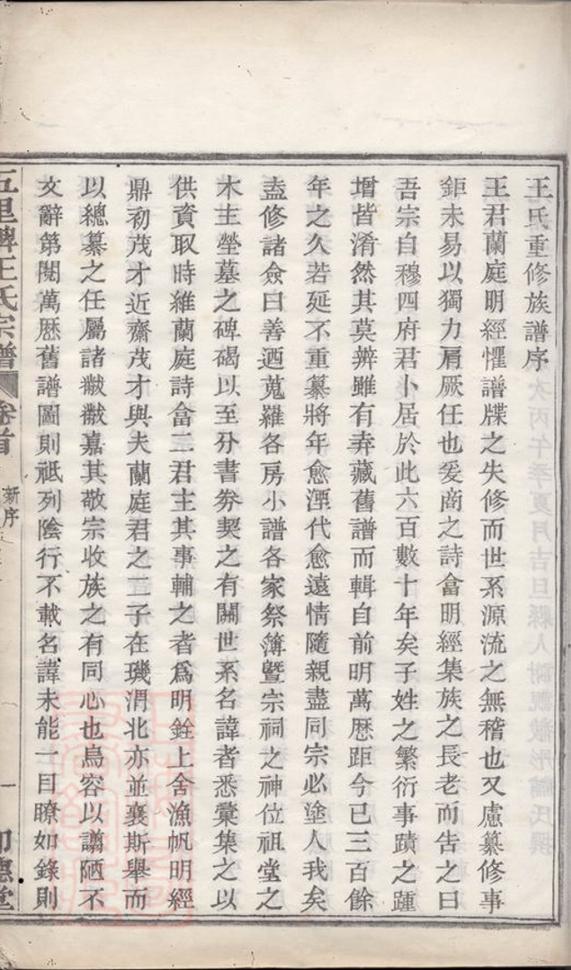 王氏重修族譜序
王君蘭庭明經懼譜牒之失修而世系源流之無稽也又慮纂修事
鉅未易以獨力肩厥任也爰商之詩畬明經集族之長老而告之曰
吾宗自穆四府君卜居於此六百數十年矣子姓之繁衍事蹟之踵
增皆淆然其莫辨雖有弆藏舊譜而輯自前明萬厯距今已三百餘
年之久若延不重纂將年愈湮代愈遠情隨親盡同宗必塗人我矣
盍修諸僉曰善迺蒐羅各房小譜各家祭簿曁宗祠之神位祖堂之
木主塋墓之碑碣以至分書券契之有關世系名諱者悉彙集之以
供資取時維蘭庭詩畬二君主其事輔之者爲明銓上舍漁帆明經
鼎初茂才近齋茂才與夫蘭庭君之二子在璣渭北亦並襄斯舉而
以總纂之任屬諸黻黻嘉其敬宗收族之有同心也烏容以譾陋不
文辭第閱萬厯舊譜圖則祗列陰行不載名諱未能一目瞭如錄則
五里牌王氏宗譜
卷首
新序
一